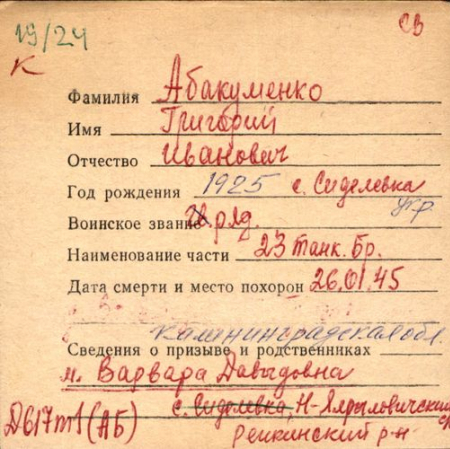 19/24
СВ
К
Фамилия Абакуменко
Имя Григорий
Отчество Иванович
Год рождения 1925 с. Сиделевка
Укр
Воинское звание ряд.
Наименование части 23 танк. Бр.
Дата смерти и место похорон 26.01.45
Калининградская обл.
Сведения о призыве и родственниках
м. Варвара Давыдовна
с. Сиделевка,
Д617т1(АБ)
р-н